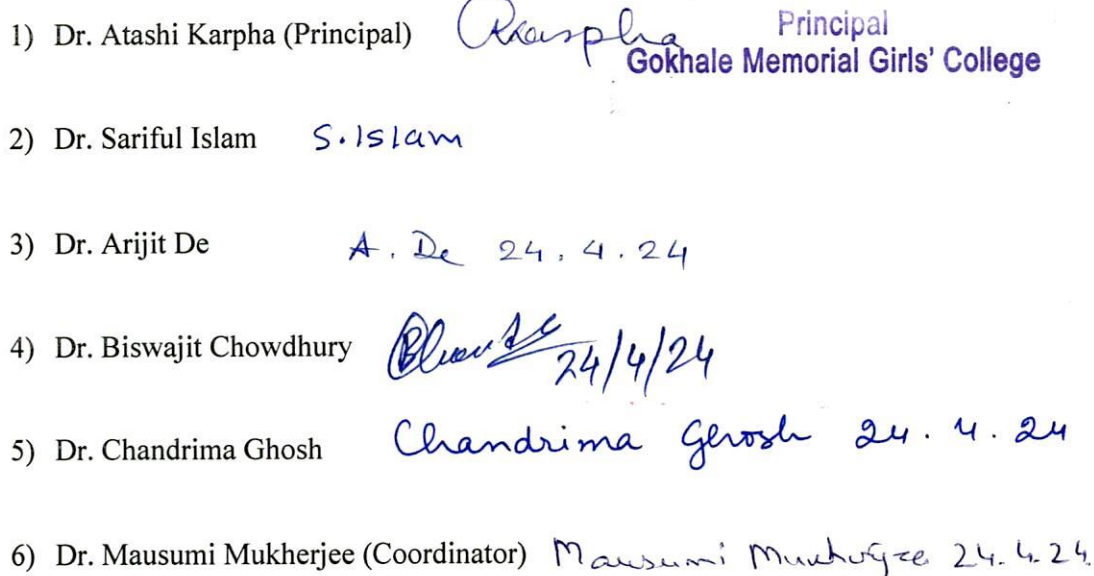 1) Dr. Atashi Karpha (Principal) AKarpha Principal
Gokhale Memorial Girls' College
2) Dr. Sariful Islam S. Islam
3) Dr. Arijit De A. De 24.4.24
4) Dr. Biswajit Chowdhury 24/4/24
5) Dr. Chandrima Ghosh Chandrima Ghosh 24.4.24
6) Dr. Mausumi Mukherjee (Coordinator) Mausumi Mukherjee 24.4.24